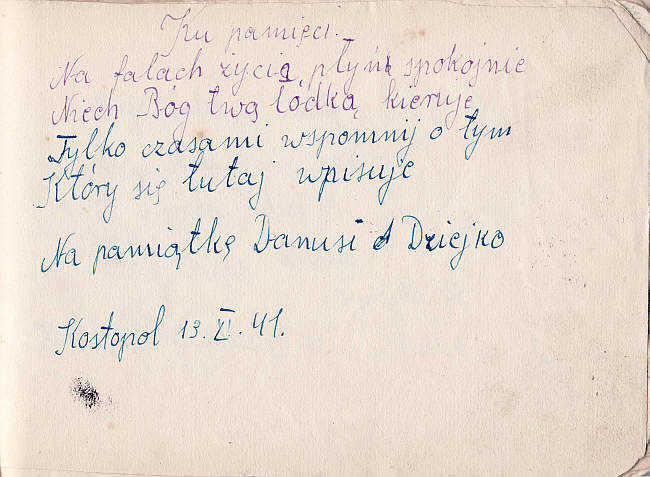 Ku pamięci.
Na falach życia płyń spokojnie
Niech Bóg twą łódką kieruje
Tylko czasami wspomnij o tym
Który się tutaj wpisuje
Na pamiątkę Danusi Dziejko
Kostopol 13. XI. 41.